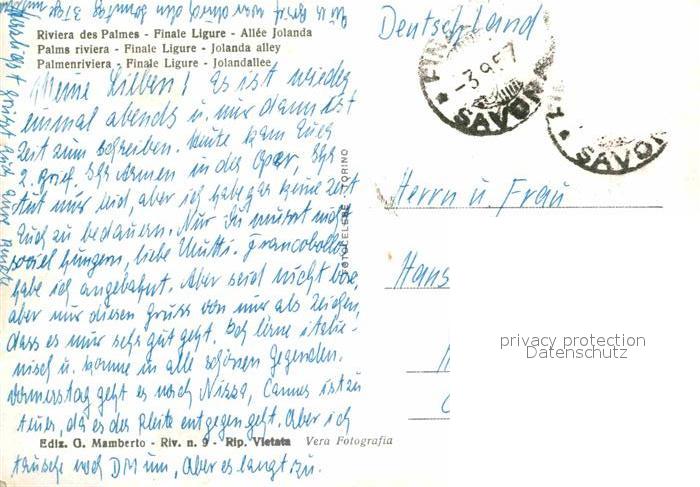 Deutschland
Riviera des Palmes - Finale Ligure - Allée Jolanda
Palms riviera - Finale Ligure - Jolanda alley
Palmenriviera - Finale Ligure - Jolandallee
Meine Lieben! Es ist wieder
einmal abends u. nur dann ist
Zeit zum schreiben. Heute kam Euer
2. Brief. Ihr Armen in der Oper, Ihr
tut mir leid, aber ich habe gar keine Zeit
Euch zu bedauern. Nur Du musst nicht
soviel hungern, liebe Mutti. Francobolli
habe ich angebahnt. Aber seid nicht böse,
aber nur diesen Gruss von mir als Zeichen,
dass es mir sehr gut geht. Ich lerne italie-
nisch u. komme in alle schönen Gegenden.
Donnerstag geht es nach Nizza, Cannes ist zu
teuer, da es der Pleite entgegen geht. Aber ich
tausche noch DM um, aber es langt zu.
Ediz. G. Mamberto - Riv. n. 9 - Rip. Vietata Vera Fotografia
FOTOCELERE TORINO
-3 9 57
SAVONA
SAVON
Herrn u. Frau
Hans
privacy protection
Datenschutz